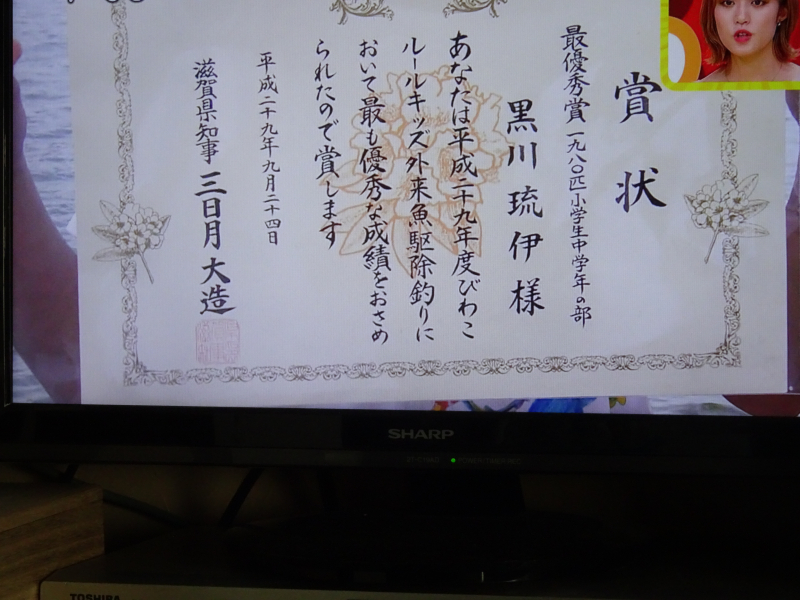 賞状
最優秀賞 一九八〇匹 小学生中学年の部
黒川琉伊様
あなたは平成二十九年度びわこ
ルールキッズ外来魚駆除釣りに
おいて最も優秀な成績をおさめ
られたので賞します
平成二十九年九月二十四日
滋賀県知事 三日月大造
SHARP
TOSHIBA